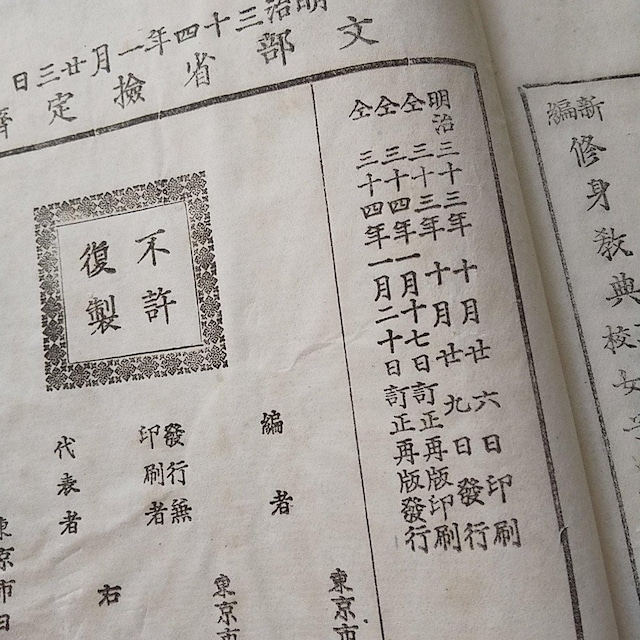 明治三十四年一月廿三日
文部省檢定濟
新編修身教典
校女
明治三十三年十月廿六日印刷
仝三十三年十月廿九日發行
仝三十四年一月十七日訂正再版印刷
仝三十四年一月二十日訂正再版發行
不許
復製
東京市
編者
東京市
發行兼
印刷者
右
代表者
東京市日